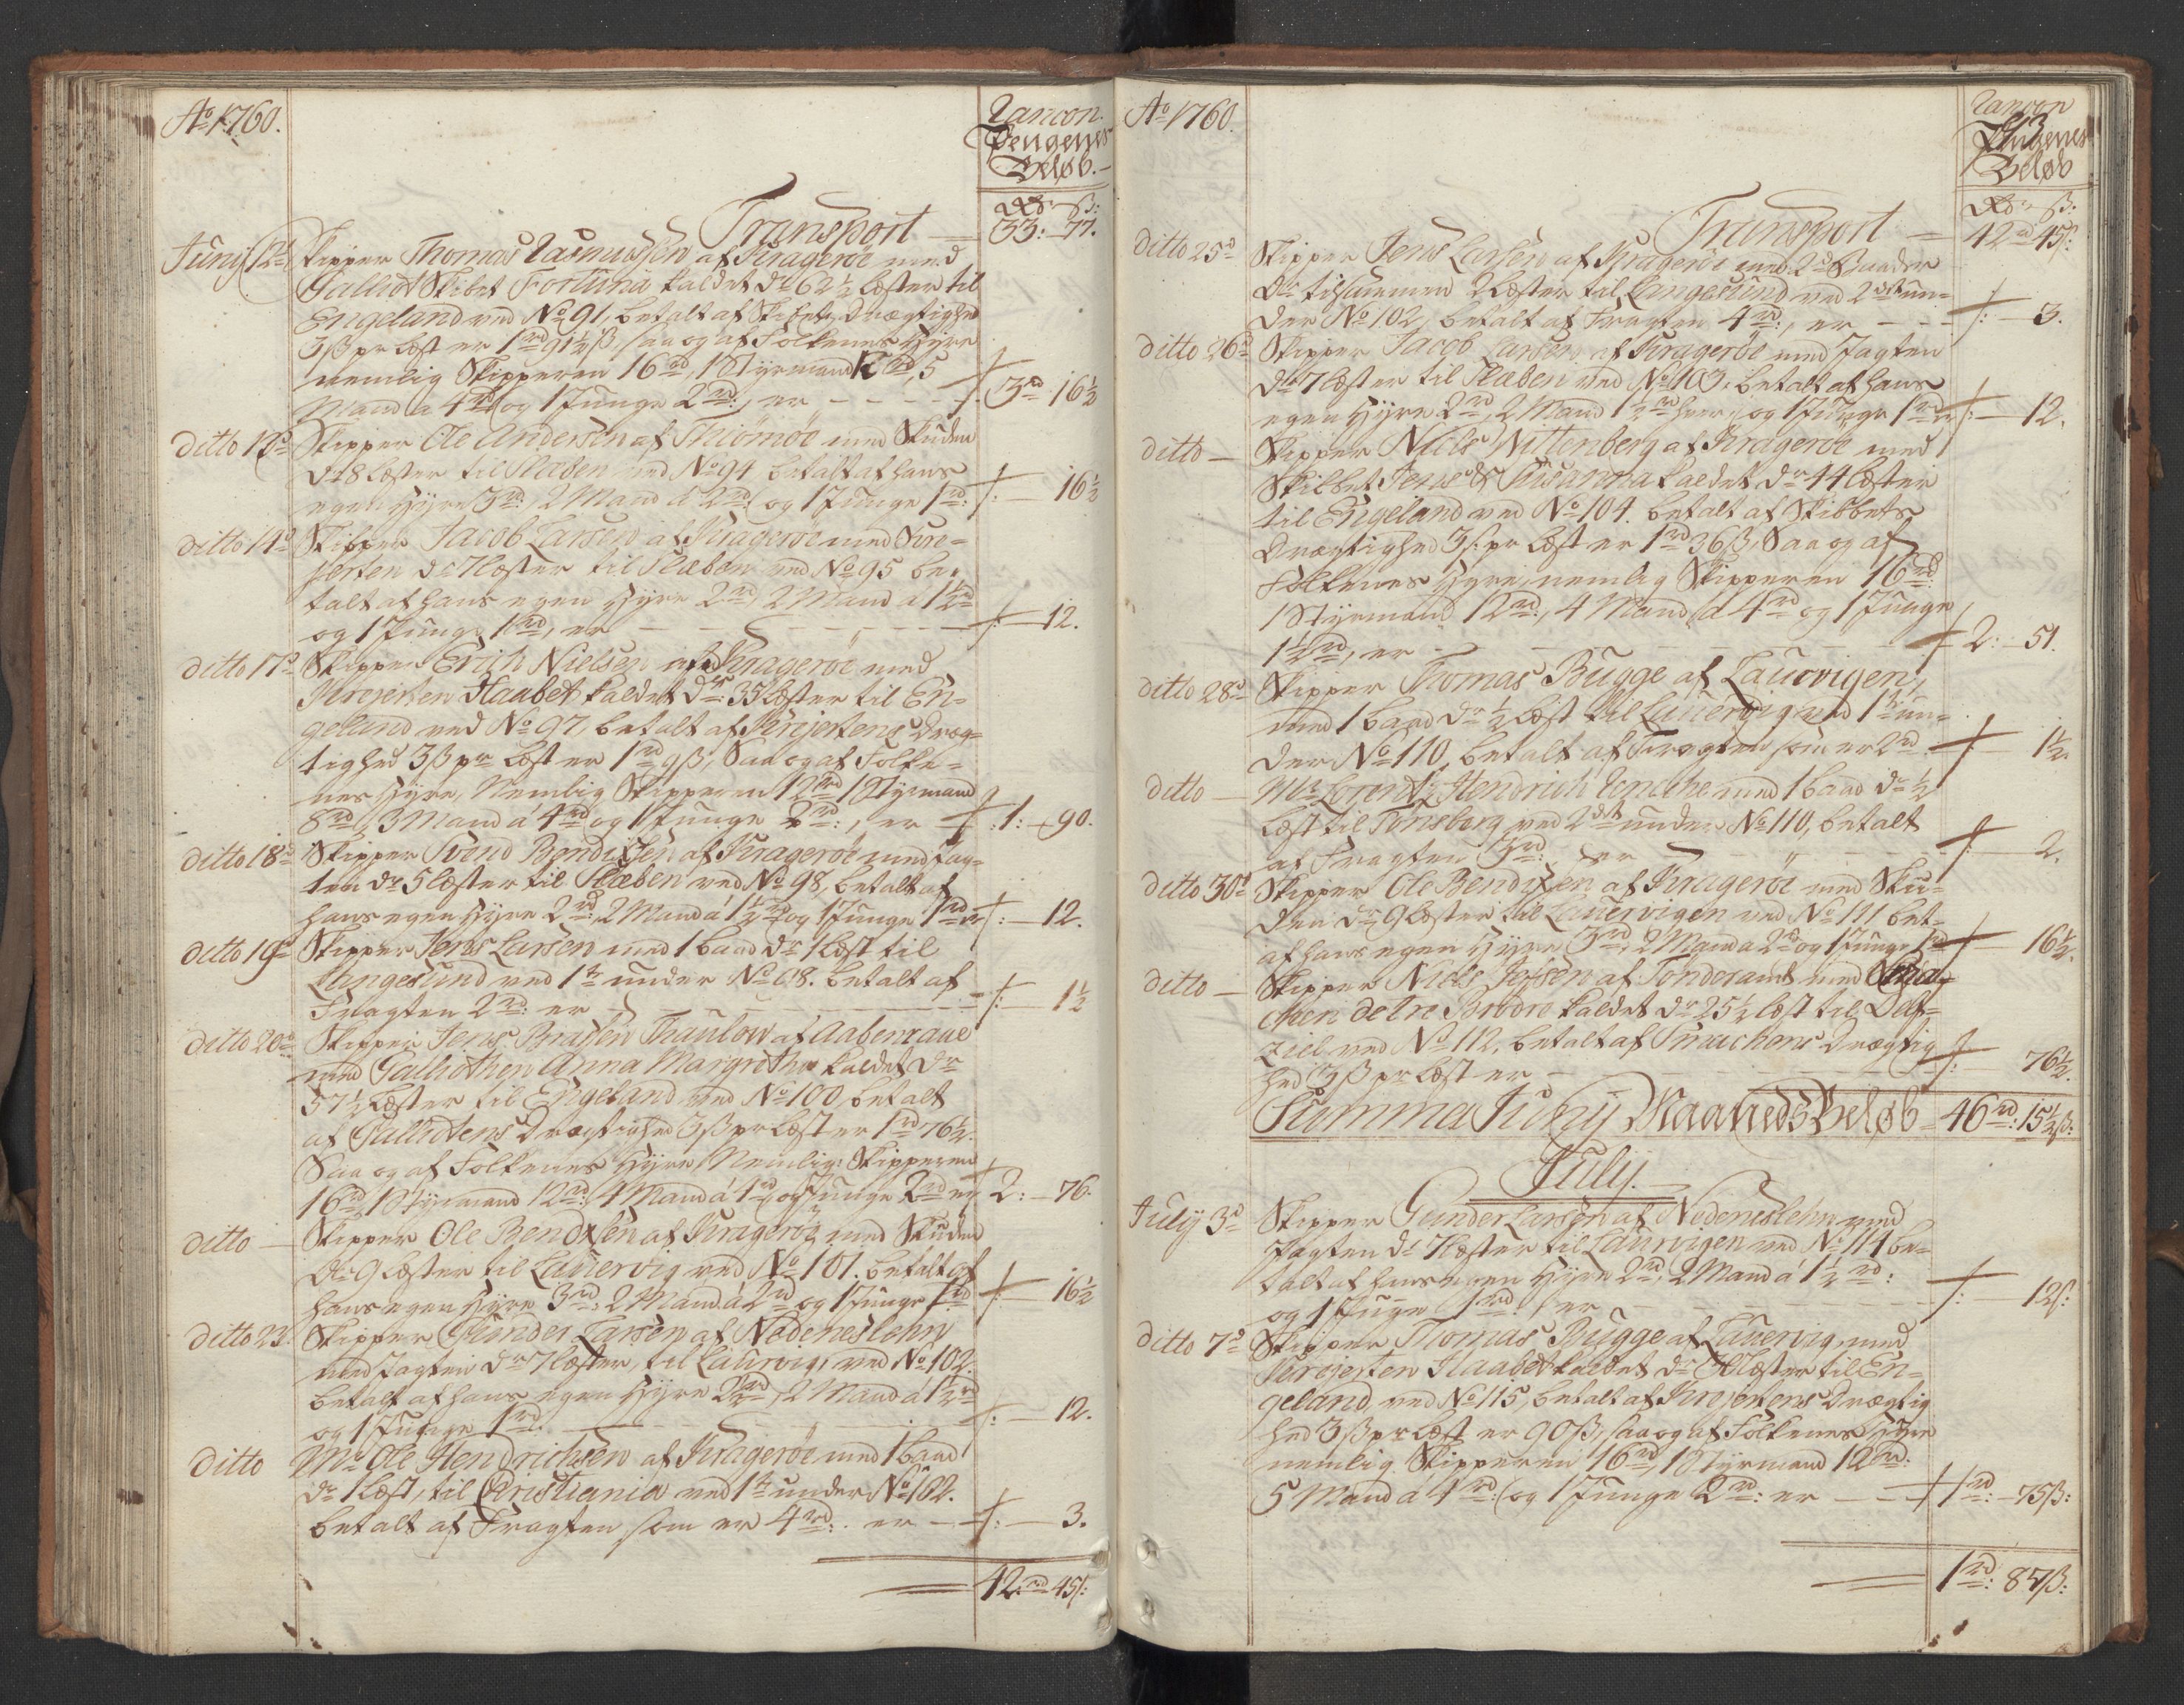 Ao 1760.
Rancon
Pengenes
Beløb.
Rd: ß:
Transport — 33: 77.
Junÿ 12d Skipper Thomas Rasmussen af Kragerøe med
Galliot Skibet Fortuna kaldet dr 62½ læster til
Engeland ved No 91, betalt af Skibets Drægtighed
3ß pr læst er 1rd 91½ß, saa og af Folkenes Hyre
nemlig Skipperen 16rd, 1 Styrmand 12rd, 5
Mand a 4rd og 1 Junge 2rd, er - - - - 3rd 16½
ditto 13d Skipper Ole Andersen af Thiømøe med Skuden
dr 8 læster til Flæben med No 94 betalt af hans
egen Hyre 3rd, 2 Mand á 2rd og 1 Junge 1rd: — 16½
ditto 14d Skipper Jacob Larsen af Kragerøe med Kre-
jerten dr 7 læster til Flæben ved No 95 be-
talt af hans egen Hyre 2rd, 2 Mand a 1½rd
og 1 Junge 1rd, er — — — 12.
ditto 17d Skipper Erich Nielsen af Kragerøe med
Krejerten Haabet kaldet dr 35 læster til En-
geland ved No 97, betalt af Krejertens Dræg-
tighed 3ß pr læst er 1rd 9ß, Saa og af Folke-
nes Hyre, Nemlig Skipperen 12rd 1 Styrmand
8rd, 3 Mand á 4rd og 1 Junge 2rd:, er — 1: — 90.
ditto 18d Skipper Svend Bendixen af Kragerøe med Jag-
ten dr 5 læster til Flæben ved No 98, betalt af
hans egen Hyre 2rd, 2 Mand á 1½rd og 1 Junge 1rd er — 12.
ditto 19d Skipper Jens Larsen med 1 baad dr 1 læst til
Langesund ved 1te under No 68. betalt af
Fragten 2rd: er — — — 1½
ditto 20d Skipper Jens Brasen Thaulow af Aabenraae
med Galliothen Anna Margretha kaldet dr
57½ læster til Engeland ved No 100, betalt
af Galliotens Drægtighed 3ß pr læst er 1rd 76½.
Saa og af Folkenes Hyre, Nemlig: Skipperen
16rd, 1 Styrmand 12rd: 4 Mand á 4rd og 1 Junge 2rd er 2: — 76.
ditto — Skipper Ole Bendixen af Kragerøe med Skuden
dr 9 læster til Lauervig ved No 101. betalt af
hans egen Hyre 3rd: 2 Mand á 2rd og 1 Junge 1rd — 16½
ditto 23. Skipper Gunder Larsen af Nedeneslehn
med Jagten dr 7 læster, til Laurvig, ved No 102.
betalt af hans egen Hyre 2rd, 2 Mand á 1½rd
og 1 Junge 1rd. — — — 12.
ditto Mr Ole Hendrichsen af Kragerøe med 1 baad
dr 1 læst, til Christiania ved 1te under No 102.
betalt af Fragten som er 4rd:. er — — 3.
42.rd 45ß:
Ao 1760.
Rancon
Pengenes
Beløb
Rd: ß:
Transport — 42rd 45ß:
ditto 25d Skipper Jens Larsen af Kragerøe med 2de Baader
dr tilsammen 2 læster til Langesund ved 2det un-
der No 102, betalt af Fragten 4rd:, er - - - 3.
ditto 26d Skipper Jacob Larsen af Kragerøe med Jagten
dr 7 læster til Flæben ved No 103. betalt af hans
egen Hyre 2rd, 2 Mand 1½rd hver, og 1 Junge 1rd er — 12.
ditto — Skipper Niels Wittenberg af Kragerøe med
Skibbet Jens & Susanna kaldet dr 44 læster
til Engeland ved No 104. betalt af Skibbets
Drægtighed 3ß. pr læst er 1rd 36ß, Saa og af
Folkenes Hyre, nemlig Skipperen 16rd:
1 Styrmand 12rd:, 4 Mand á 4rd og 1 Junge
1½rd, er — — — 2: — 51.
ditto 28d Skipper Thomas Bugge af Laurvigen,
med 1 baad dr ½ læst til Lauervig ved 1te un-
der No 110, betalt af Fragten som er 2rd — 1½
ditto — Mr Lorentz Hendrich med 1 baad dr ½
læst til Tønsberg ved 2det under No 110, betalt
af Fragten 3rd: er — — 2.
ditto 30d Skipper Ole Bendixen af Kragerøe med Sku-
den dr 9 læster til Lauervigen ved No 111 bet-
af hans egen Hyre 3rd, 2 Mand a 2rd og 1 Junge 1rd — 16½.
ditto — Skipper Niels Jessen af Tønderamt med Smac-
chen de tre Brødre kaldet dr 25½ læst til Delf-
ziel ved No 112, betalt af Smachens Drægtig-
hed 3ß pr læst er — — — 76½.
Summa Junÿ Maaneds Beløb — 46rd: 15½ß:
Julÿ.
Julÿ 3d Skipper Gunder Larsen af Nedeneslehn med
Jagten dr 7 læster til Laurvigen ved No 114 be-
talt af hans egen Hyre 2rd, 2 Mand á 1½rd:
og 1 Junge 1rd:, er — — — 12ß:
ditto 7d Skipper Thomas Bugge af Lauervig med
Krejerten Haabet kaldet dr 30 læster til En-
geland, ved No 115, betalt af Krejertens Drægtig
hed 3ß pr læst er 90ß, saa og af Folkenes Hyre
nemlig Skipperen 16rd, 1 Styrmand 12rd:
5 Mand á 4rd: og 1 Junge 2rd: er — — 1rd: 75ß:
1rd: 87ß: